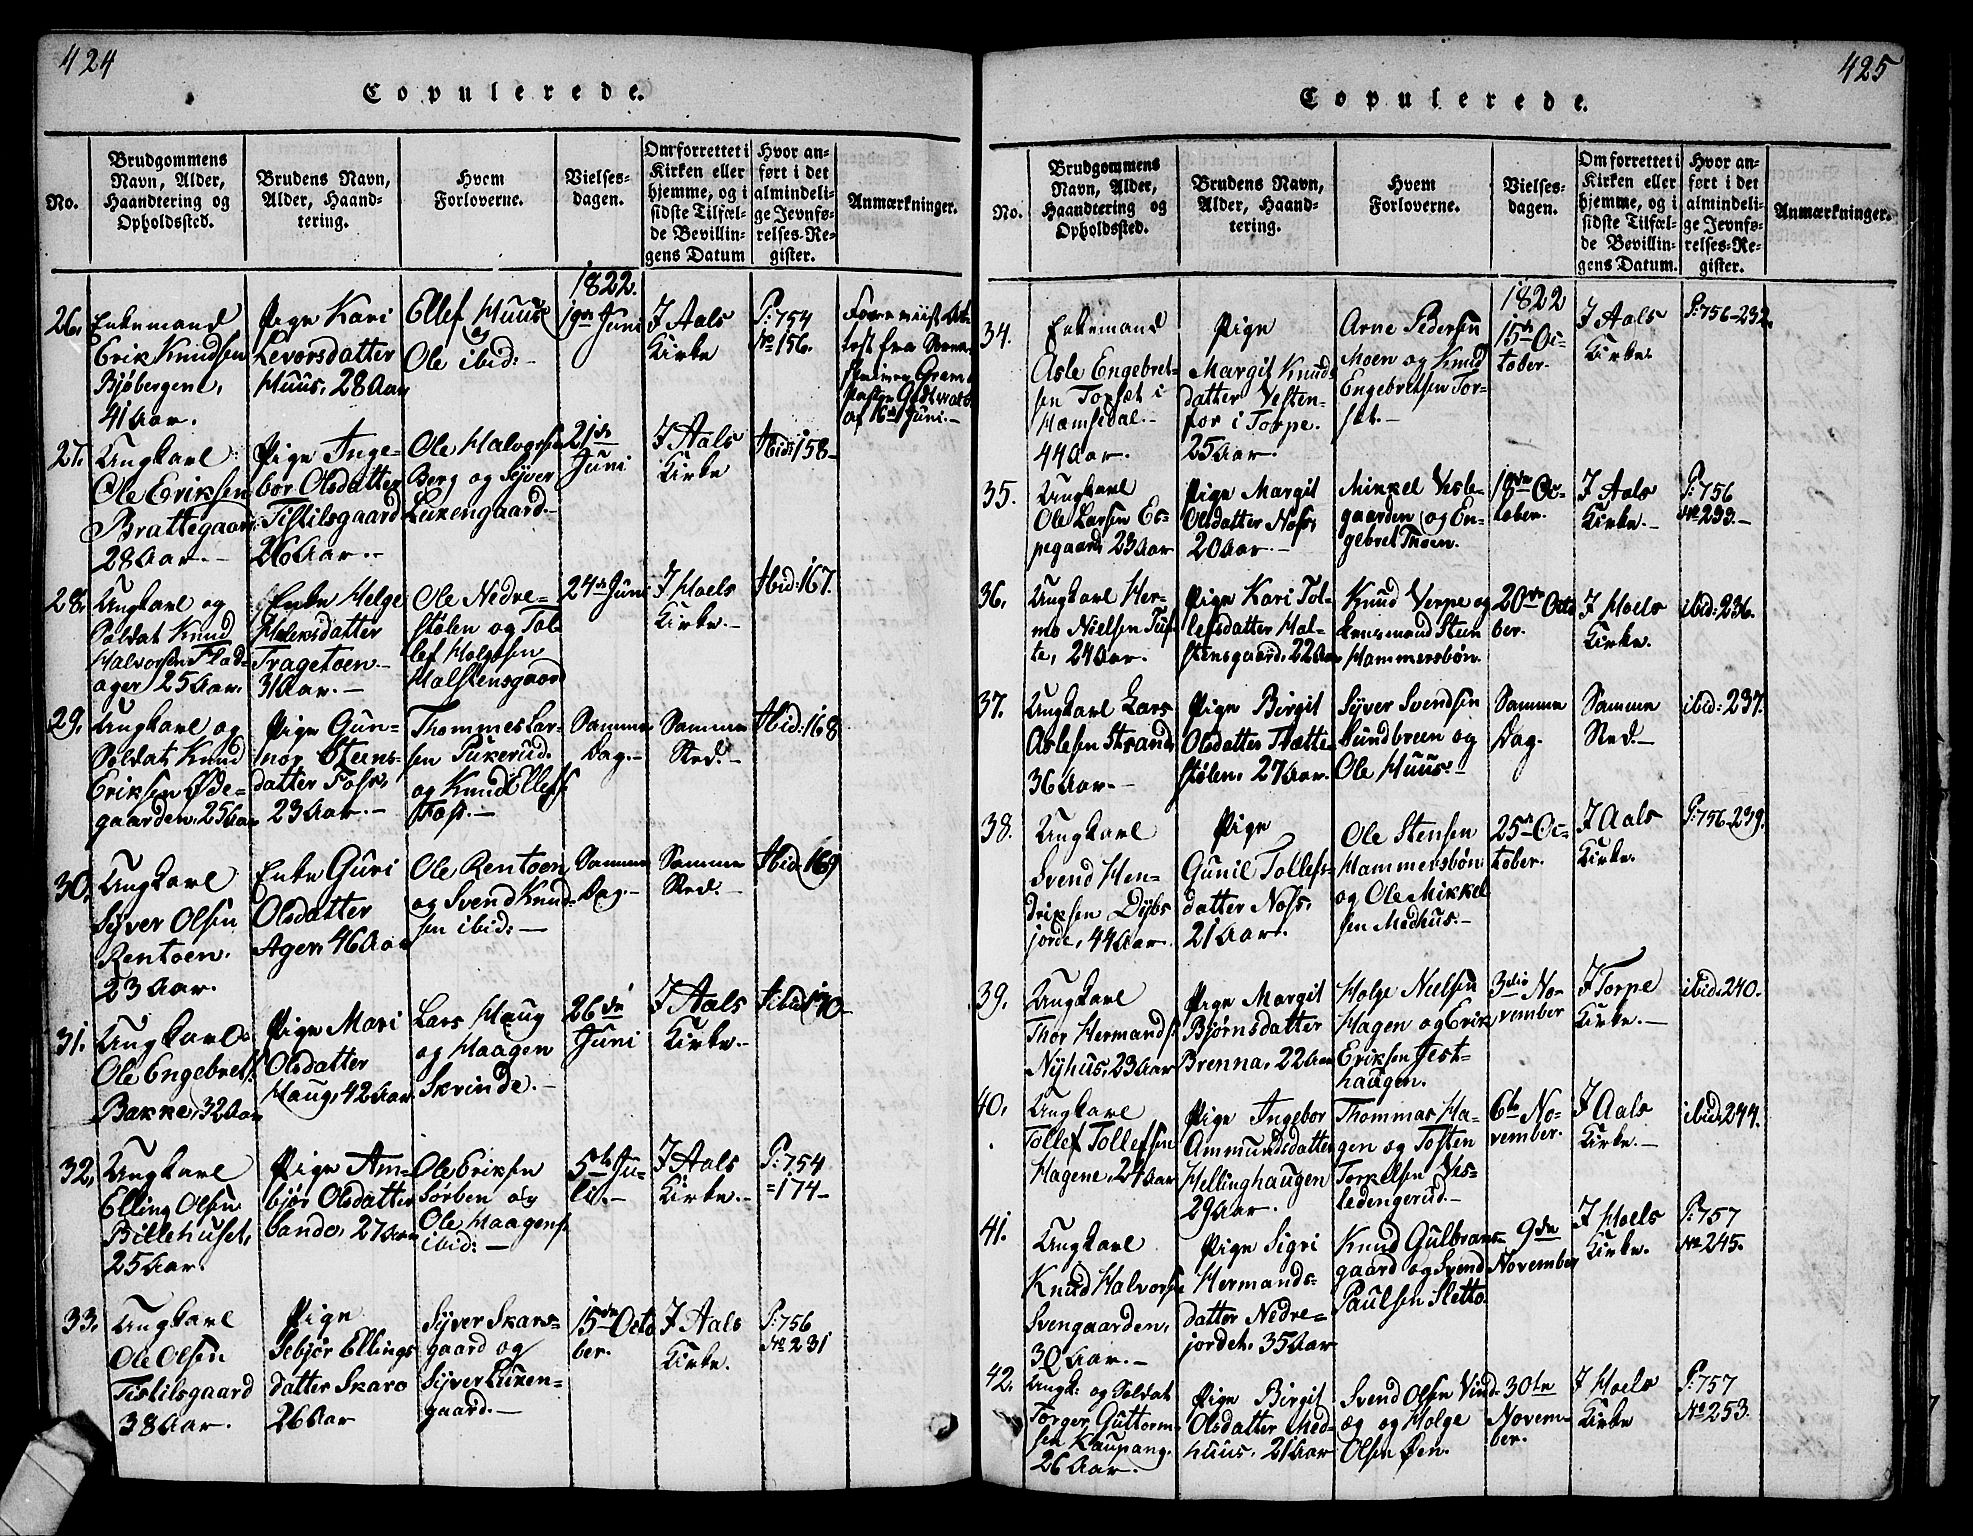 424
Copulerede.
No.
Brudgommens
Navn, Alder,
Haandtering og
Opholdssted.
Brudens Navn,
Alder, Haand-
tering.
Hvem
Forloverne.
Vielses-
dagen.
Om forrettet i
Kirken eller
hjemme, og i
sidste Tilfæl-
de Bevillin-
gens Datum
Hvor an-
ført i det
almindeli-
ge Jevnfø-
relses-Re-
gister.
Anmærkninger.
1822.
26.
Enkemand
Erik Knudsen
Bjøbergene,
41 Aar.
Pige Kari
Levorsdatter
Huus, 28 Aar
Ellef Huus
og
Ole ibid:
Juni
I Aals
Kirke
P: 754
No 156.
af 16de Juni.
27.
Ungkarl
Ole Eriksen
Brattegaard
28 Aar.
Pige Inge-
bor Olsdatter
Tistilsgaard
26 Aar.
Ole Halvorsen
Berg og Syver
Luxengaard
21de
Juni
I Aals
Kirke
Ibid: 158
28.
Ungkarl og
Soldat Knud
Halvorsen Flad-
ager 25 Aar.
Enke Helge
Tragetoen
31 Aar.
Ole Nedre-
stølen og Tol-
lef Holgesen
Halstensgaard
24de Juni
I Hoels
Kirke.
Ibid: 167.
29.
Ungkarl og
Soldat Knud
Eriksen Øde-
gaarden, 25 Aar
Pige Gun-
nor Steens-
datter Foss,
23 Aar.
Thommes Lar-
sen Pukerud
og Knud Ellefs.
Foss.
Samme
Dag.
Samme
Sted.
Ibid: 168
30.
Ungkarl
Syver Olsen
Rentoen.
23 Aar.
Enke Guri
Olsdatter
Ager, 46 Aar
Ole Rentoen
og Svend Knud-
sen ibid:
Samme
Dag.
Samme
Sted.
Ibid: 169
31.
Ungkarl
Ole Engebrets.
Bakke, 32 Aar
Pige Mari
Olsdatter
Haug, 42 Aar
Lars Haug
og Haagen
Skrinde.
26de
Juni
I Aals
Kirke.
Ibid: 170
32.
Ungkarl
Elling Olsen
Billehuset,
25 Aar.
Pige Am-
bjør Olsdatter
Sando, 27 Aar
Ole Eriksen
Sørben og
Ole Haagens.
ibid:
5te Ju-
li.
I Aals
Kirke.
P: 754
=174
33.
Ungkarl
Ole Olsen
Tistilsgaard
38 Aar.
Pige
Sebjør Ellings
datter Skaro
26 Aar
Syver Skars-
gaard og
Syver Luxen-
gaard.
15de Octo
ber.
I Aals
Kirke.
P: 756
No 231
425
Copulerede.
No.
Brudgommens
Navn, Alder,
Haandtering og
Opholdssted.
Brudens Navn,
Alder, Haand-
tering.
Hvem
Forloverne.
Vielses-
dagen.
Om forrettet i
Kirken eller
hjemme, og i
sidste Tilfæl-
de Bevillin-
gens Datum.
Hvor an-
ført i det
almindeli-
ge Jevnfø-
relses-Re-
gister.
Anmærkninger.
1822
34.
Enkemand
Asle Engebret-
sen Torset i
Hæmsedal.
44 Aar.
Pige
Margit Knuds
datter Vesten-
for i Torpe.
25 Aar.
Arne Pedersen
Moen og Knud
Engebretsen Tor-
set.
15de Oc-
tober.
I Aals
Kirke.
P: 756-232.
35.
Ungkarl
Ole Larsen Es-
pegaard, 23 Aar
Pige Margit
Olsdatter Noss,
20 Aar.
Mikkel Vesle-
gaarden og En-
gebret Thoen.
Oc-
tober.
I Aals
Kirke.
P: 756
No 233.
36.
Ungkarl Her-
mo Nielsen Tuf-
te, 24 Aar.
Pige Kari Tol-
lefsdatter Hal-
stensgaard, 22 Aar
Knud Verpe og
Lensmand Steen
Hammersbøn.
20de Octo
ber.
I Hoels
Kirke.
ibid: 236.
37.
Ungkarl Lars
Aslesen Strand,
36 Aar.
Pige Birgit
Olsdatter Trætte-
stølen, 27 Aar.
Syver Svendsen
Sundbreen og
Ole Huus.
Samme
Dag.
Samme
Sted.
ibid: 237.
38.
Ungkarl
Svend Hen-
driksen Dybs
jorde, 44 Aar.
Pige
Gunil Tollefs-
datter Noss,
21 Aar.
Ole Stensen
Hammersbøn
og Ole Mikkel
sen Medhus.
25de Oc-
tober.
I Aals
Kirke.
P: 756-239.
39.
Ungkarl
Thor Hermands.
Nyhus, 23 Aar
Pige Margit
Bjørnsdatter
Brenna, 22 Aar
Holge Nielsen
Hagen og Erik
Eriksen Jest-
haugen.
3die No-
vember
I Torpe
Kirke.
ibid: 240.
40.
Ungkarl
Tollef Tollefsen
Hagene, 24 Aar
Pige Ingebor
Ammundsdatter
Hellinghaugen
29 Aar.
Thommas Ha-
gen og Tosten
Torkelsen Ves-
ledengerud.
6te No-
vember.
I Aals
Kirke.
ibid: 244.
41.
Ungkarl
Knud Halvorsen
Svengaarden,
30 Aar.
Pige Sigri
Hermands-
datter Nedre-
jordet, 35 Aar
Knud Gulbrans-
gaard og Svend
Paulsen Sletto.
9de
November
I Hoels
Kirke.
P: 757
No 245.
42.
Ungk. og Soldat
Torger Guttorm-
sen Kaupang,
26 Aar.
Pige Birgit
Olsdatter Med-
huus, 21 Aar
Svend Olsen Vind-
eg og Holge
Olsen Øen.
30te
Novem-
ber.
I Hoels
Kirke
P: 757
No 253.